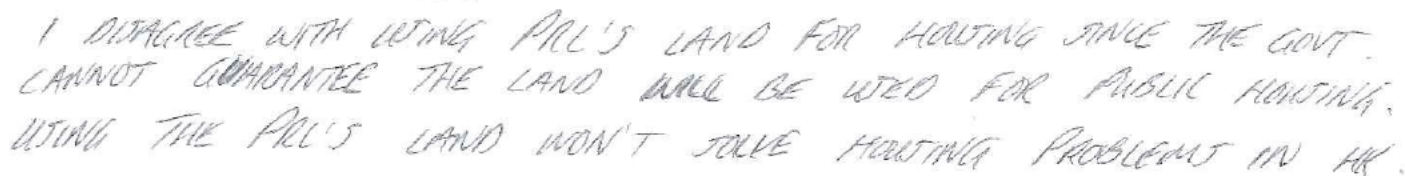 I DISAGREE WITH USING PRL'S LAND FOR HOUSING SINCE THE GOVT.
CANNOT GUARANTEE THE LAND WILL BE USED FOR PUBLIC HOUSING.
USING THE PRL'S LAND WON'T SOLVE HOUSING PROBLEMS IN HK.